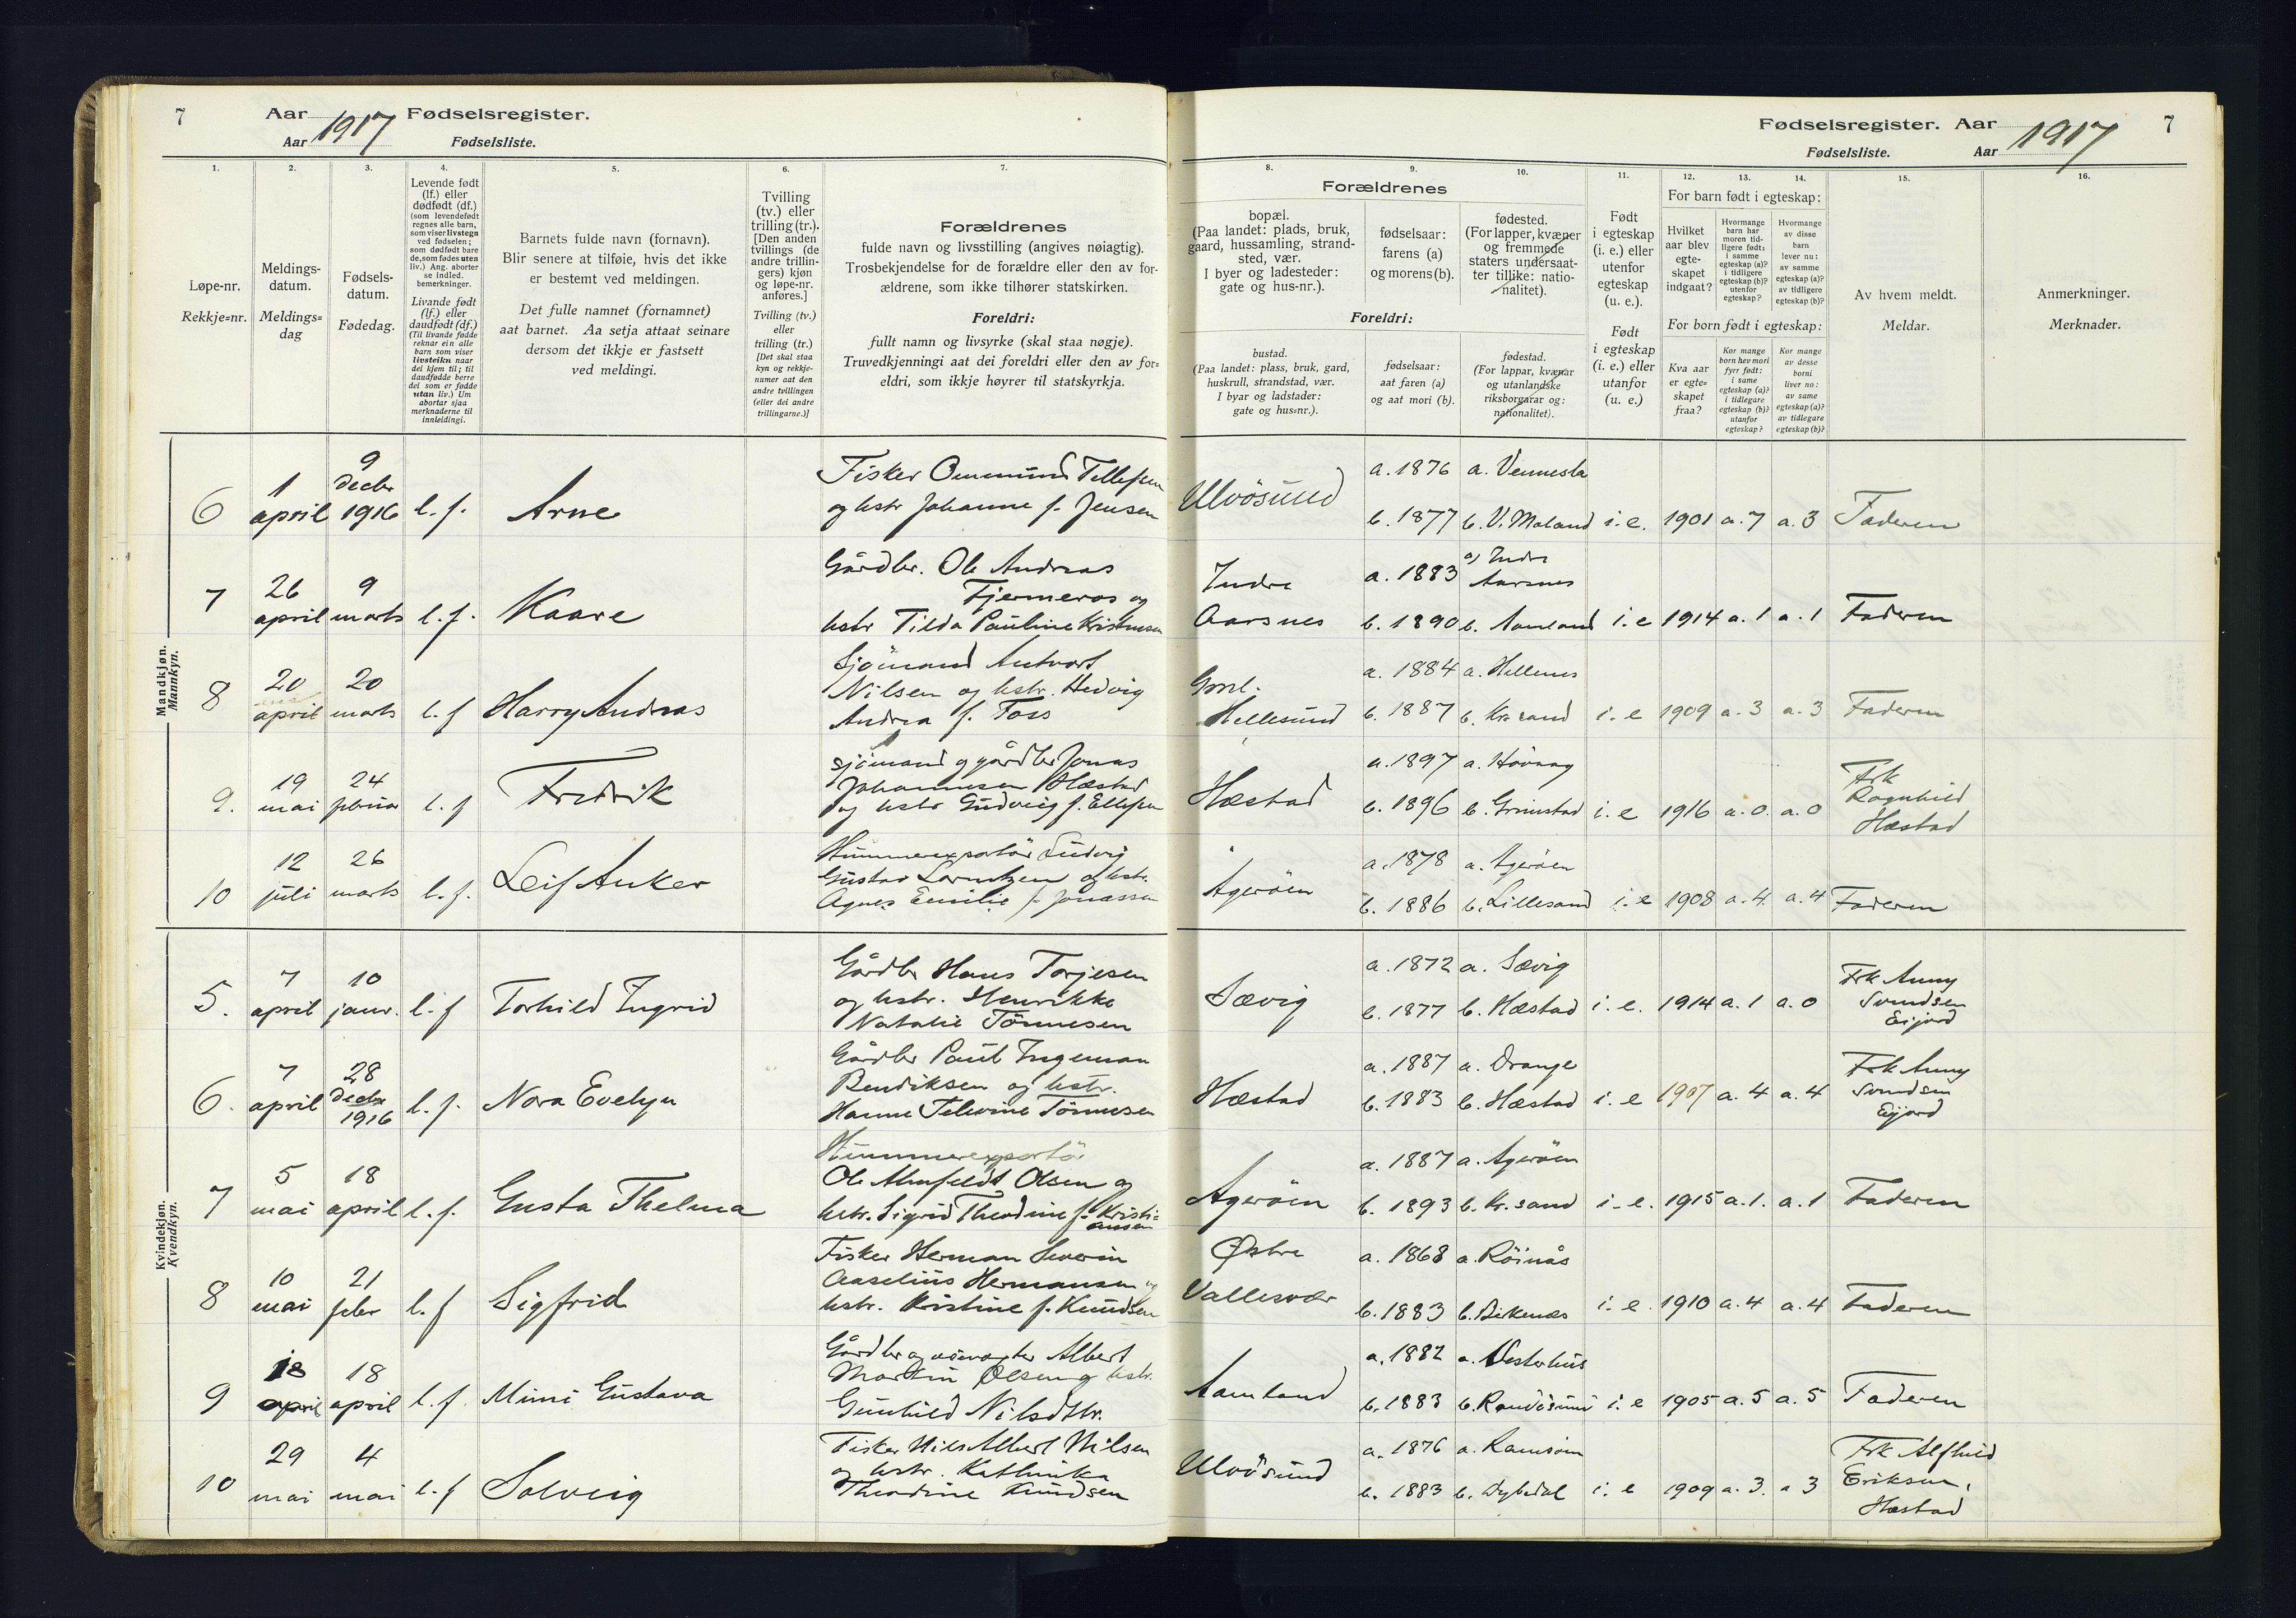 7 Aar 1917 Fødselsregister.
Aar Fødselsliste.
1.
2.
3.
4.
5.
6.
7.
Løpe-nr.
Rekkje=nr.
Meldings-
datum.
Meldings=
dag
Fødsels-
datum.
Fødedag.
Levende født
(lf.) eller
dødfødt (df.)
(som levendefødt
regnes alle barn,
som viser livstegn
ved fødselen;
som dødfødt bare
de, som fødes uten
liv.) Ang. aborter
se indled.
bemerkninger.
Livande født
(lf.) eller
daudfødt (df.)
(Til livande fødde
reknar ein alle
barn som viser
livsteikn naar
dei kjem til; til
daudfødde berre
dei som er fødde
utan liv.) Um
abortar sjaa
merknaderne til
innleidingi.
Barnets fulde navn (fornavn).
Blir senere at tilføie, hvis det ikke
er bestemt ved meldingen.
Det fulle namnet (fornamnet)
aat barnet. Aa setja attaat seinare
dersom det ikkje er fastsett
ved meldingi.
Tvilling
(tv.) eller
trilling (tr.).
[Den anden
tvillings (de
andre trillin-
gers) kjøn
og løpe-nr.
anføres.]
Tvilling (tv.)
eller
trilling (tr.)
[Det skal staa
kyn og rekkje-
numer aat den
andre tvillingen
(eller dei andre
trillingarne.)]
Forældrenes
fulde navn og livsstilling (angives nøiagtig).
Trosbekjendelse for de forældre eller den av for-
ældrene, som ikke tilhører statskirken.
Foreldri:
fullt namn og livsyrke (skal staa nøgje).
Truvedkjenningi aat dei foreldri eller den av for=
eldri, som ikkje høyrer til statskyrkja.
Fødselsregister. Aar 1917 7
Fødselsliste. Aar
8.
9.
10.
11.
12.
13.
14.
15.
16.
Forældrenes
bopæl.
(Paa landet: plads, bruk,
gaard, hussamling, strand-
sted, vær.
I byer og ladesteder:
gate og hus-nr.).
fødselsaar:
farens (a)
og morens (b).
fødested.
(For lapper, kvæner
og fremmede
staters undersaat-
ter tillike: natio-
nalitet).
Foreldri:
bustad.
(Paa landet: plass, bruk, gard,
huskrull, strandstad, vær.
I byar og ladstader:
gate og hus=nr.).
fødselsaar:
aat faren (a)
og aat mori (b).
fødestad.
(For lappar, kvænar
og utanlandske
riksborgarar og:
nationalitet).
Født
i egteskap
(i. e.) eller
utenfor
egteskap
(u. e.).
Født
i egteskap
(i. e.) eller
utanfor
(u. e.)
For barn født i egteskap:
Hvilket
aar blev
egte-
skapet
indgaat?
Hvormange
barn har
moren tid-
ligere født:
i samme
egteskap (a)?
i tidligere
egteskap (b)?
utenfor
egteskap?
Hvormange
av disse
barn
lever nu:
av samme
egteskap (a)?
av tidligere
egteskap (b)?
For born født i egteskap:
Kva aar
er egte=
skapet
fraa?
Kor mange
born hev mori
fyrr født:
i same
egteskap (a)?
i tidlegare
egteskap (b)?
utanfor
egteskap?
Kor mange
av desse
borni
liver no:
av same
egteskap (a)?
av tidlegare
egteskap (b)?
Av hvem meldt.
Meldar.
Anmerkninger.
Merknader.
Mandkjøn.
Mannkyn.
6 1 april 9 decbr 1916 l. f. Arne
Fisker Ommund Tellefsen
og hstr Johanne f. Jensen
Ulvösund a. 1876 a. Vennesla
b. 1877 b. V. Moland i. e. 1901 a. 7 a. 3 Faderen
7 26 april 9 marts l. f. Kaare
Gårdbr. Ole Andreas
Fjermeros og
hstr Tilda Pauline Kristensen
Indre Aarsnes a. 1883 a) Indre Aarsnes
b. 1890 b. Aamland i. e 1914 a. 1 a. 1 Faderen
8 20 april 20 marts l. f Harry Andreas
Sjömand Antvort
Nilsen og hstr. Hedvig
Andrea f. Foss
Gml. Hellesund a. 1884 a. Hellenes
b. 1887 b. Kr. sand i. e 1909 a. 3 a. 3 Faderen
9. 19 mai 24 februar l. f Fredrik
sjömand og gårdbr Jonas
Johannesen Hæstad
og hstr Gudveig f. Ellefsen
Hæstad a. 1897 a. Hövaag
b. 1896 b. Grimstad i. e 1916 a. 0. a. 0 Frk Ragnhild Hæstad
10 12 juli 26 marts l. f. Leif Anker
Hummerexportör Ludvig
Gustav Lorentzen og hstr.
Agnes Emilie f. Jonassen
Ågeröen a. 1878 a. Ågeröen
b. 1886 b. Lillesand i. e 1908 a. 4. a. 4 Faderen
Kvindekjøn.
Kvendkyn.
5. 7 april 10 janr. l. f Torhild Ingrid
Gårdbr Hans Torjesen
og hstr. Henrikke
Natalie Tönnesen
Sævig a. 1872 a. Sævig
b. 1877 b. Hæstad i. e. 1914 a. 1 a. 0 Frk Anny Svendsen Eijord
6. 7 april 28 decbr 1916 l. f. Nora Evelyn
Gårdbr Paul Ingeman
Bendiksen og hstr.
Hanne Televine Tönnesen
Hæstad a. 1887 a. Drange
b. 1883 b. Hæstad i. e 1907 a. 4 a. 4 Frk Anny Svendsen Eijord
7 5 mai 18 april l. f. Gusta Thelma
Hummerexportör
Ole Almfeldt Olsen og
hstr. Sigrid Theodine f. Kristi=
ansen
Ågeröen a. 1887 a. Ågeröen
b. 1893 b. Kr. sand i. e. 1915 a. 1. a. 1 Faderen
8 10 mai 21 febr l. f Sigfrid
Fisker Herman Severin
Aaselius Hermansen og
hstr. Kristine f. Knudsen
Østre Vallesvær a. 1868 a. Röinås
b. 1883 b. Birkenæs i. e. 1910 a. 4 a. 4 Faderen
9 18 april 18 april l. f. Mimi Gustava
Gårdbr og Albert
Martin Olsen og hstr.
Gunhild Nilsdtr.
Aamland a. 1882 a. Vesterhus
b. 1883 b. Randösund i. e 1905 a. 5 a. 5 Faderen
10 29 mai 4 mai l. f Solveig
Fisker Nils Albert Nilsen
og hstr. Kathinka
Theodine Knudsen
Ulvösund a. 1876 a. Ramsöen
b. 1883 b. Dybedal i. e 1909 a. 3. a 3 Frk Alfhild Eriksen, Hæstad